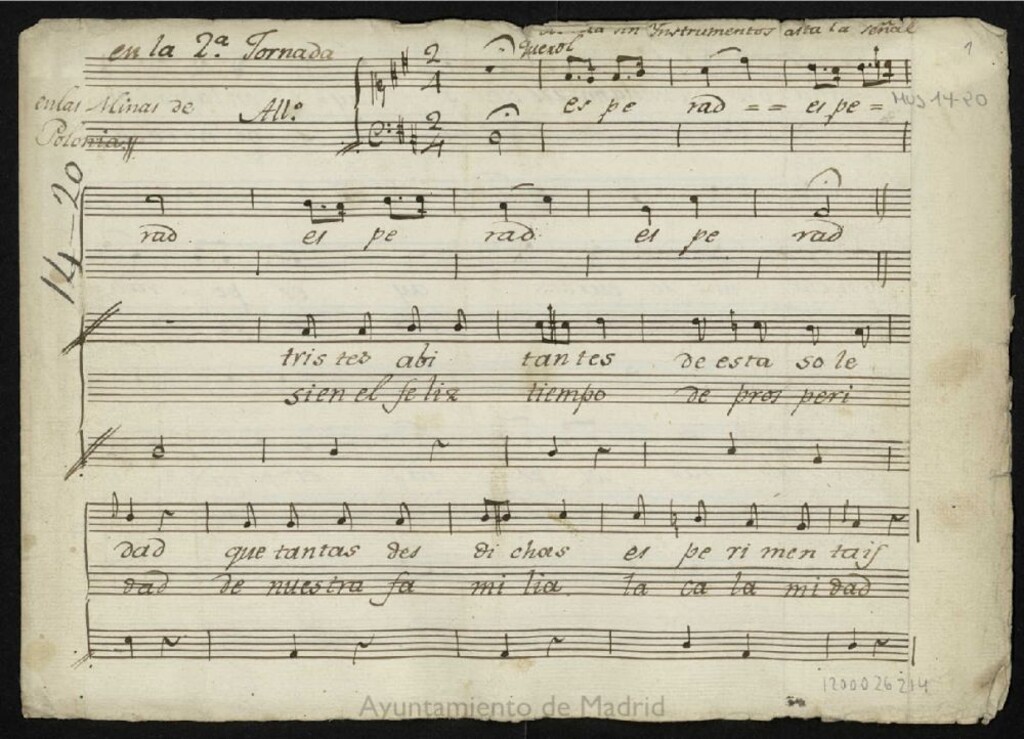 sin Instrumentos asta la señal
en la 2ª Jornada
Querol
1
2 4
en las Minas de All.º
es pe rad = = es pe =
MUS 14-20
Polonia
2 4
14-20
rad es pe rad es pe rad
tris tes abi tantes de esta so le
si en el feliz tiempo de pros peri
dad que tantas des di chas es pe ri men tais
dad de nuestra fa mi lia la ca la mi dad
1200026214
Ayuntamiento de Madrid